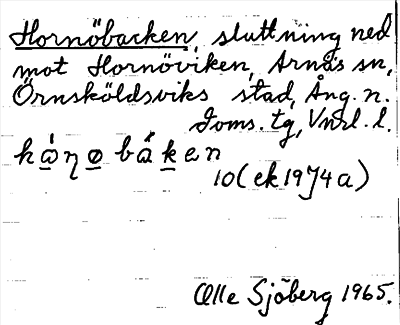 Hornöbacken, sluttning ned
mot Hornöviken, Arnäs sn,
Örnsköldsviks stad, Ång. n.
Joms. tg, Vnrl. l.
10 (ek 1974 a)
Olle Sjöberg 1965.